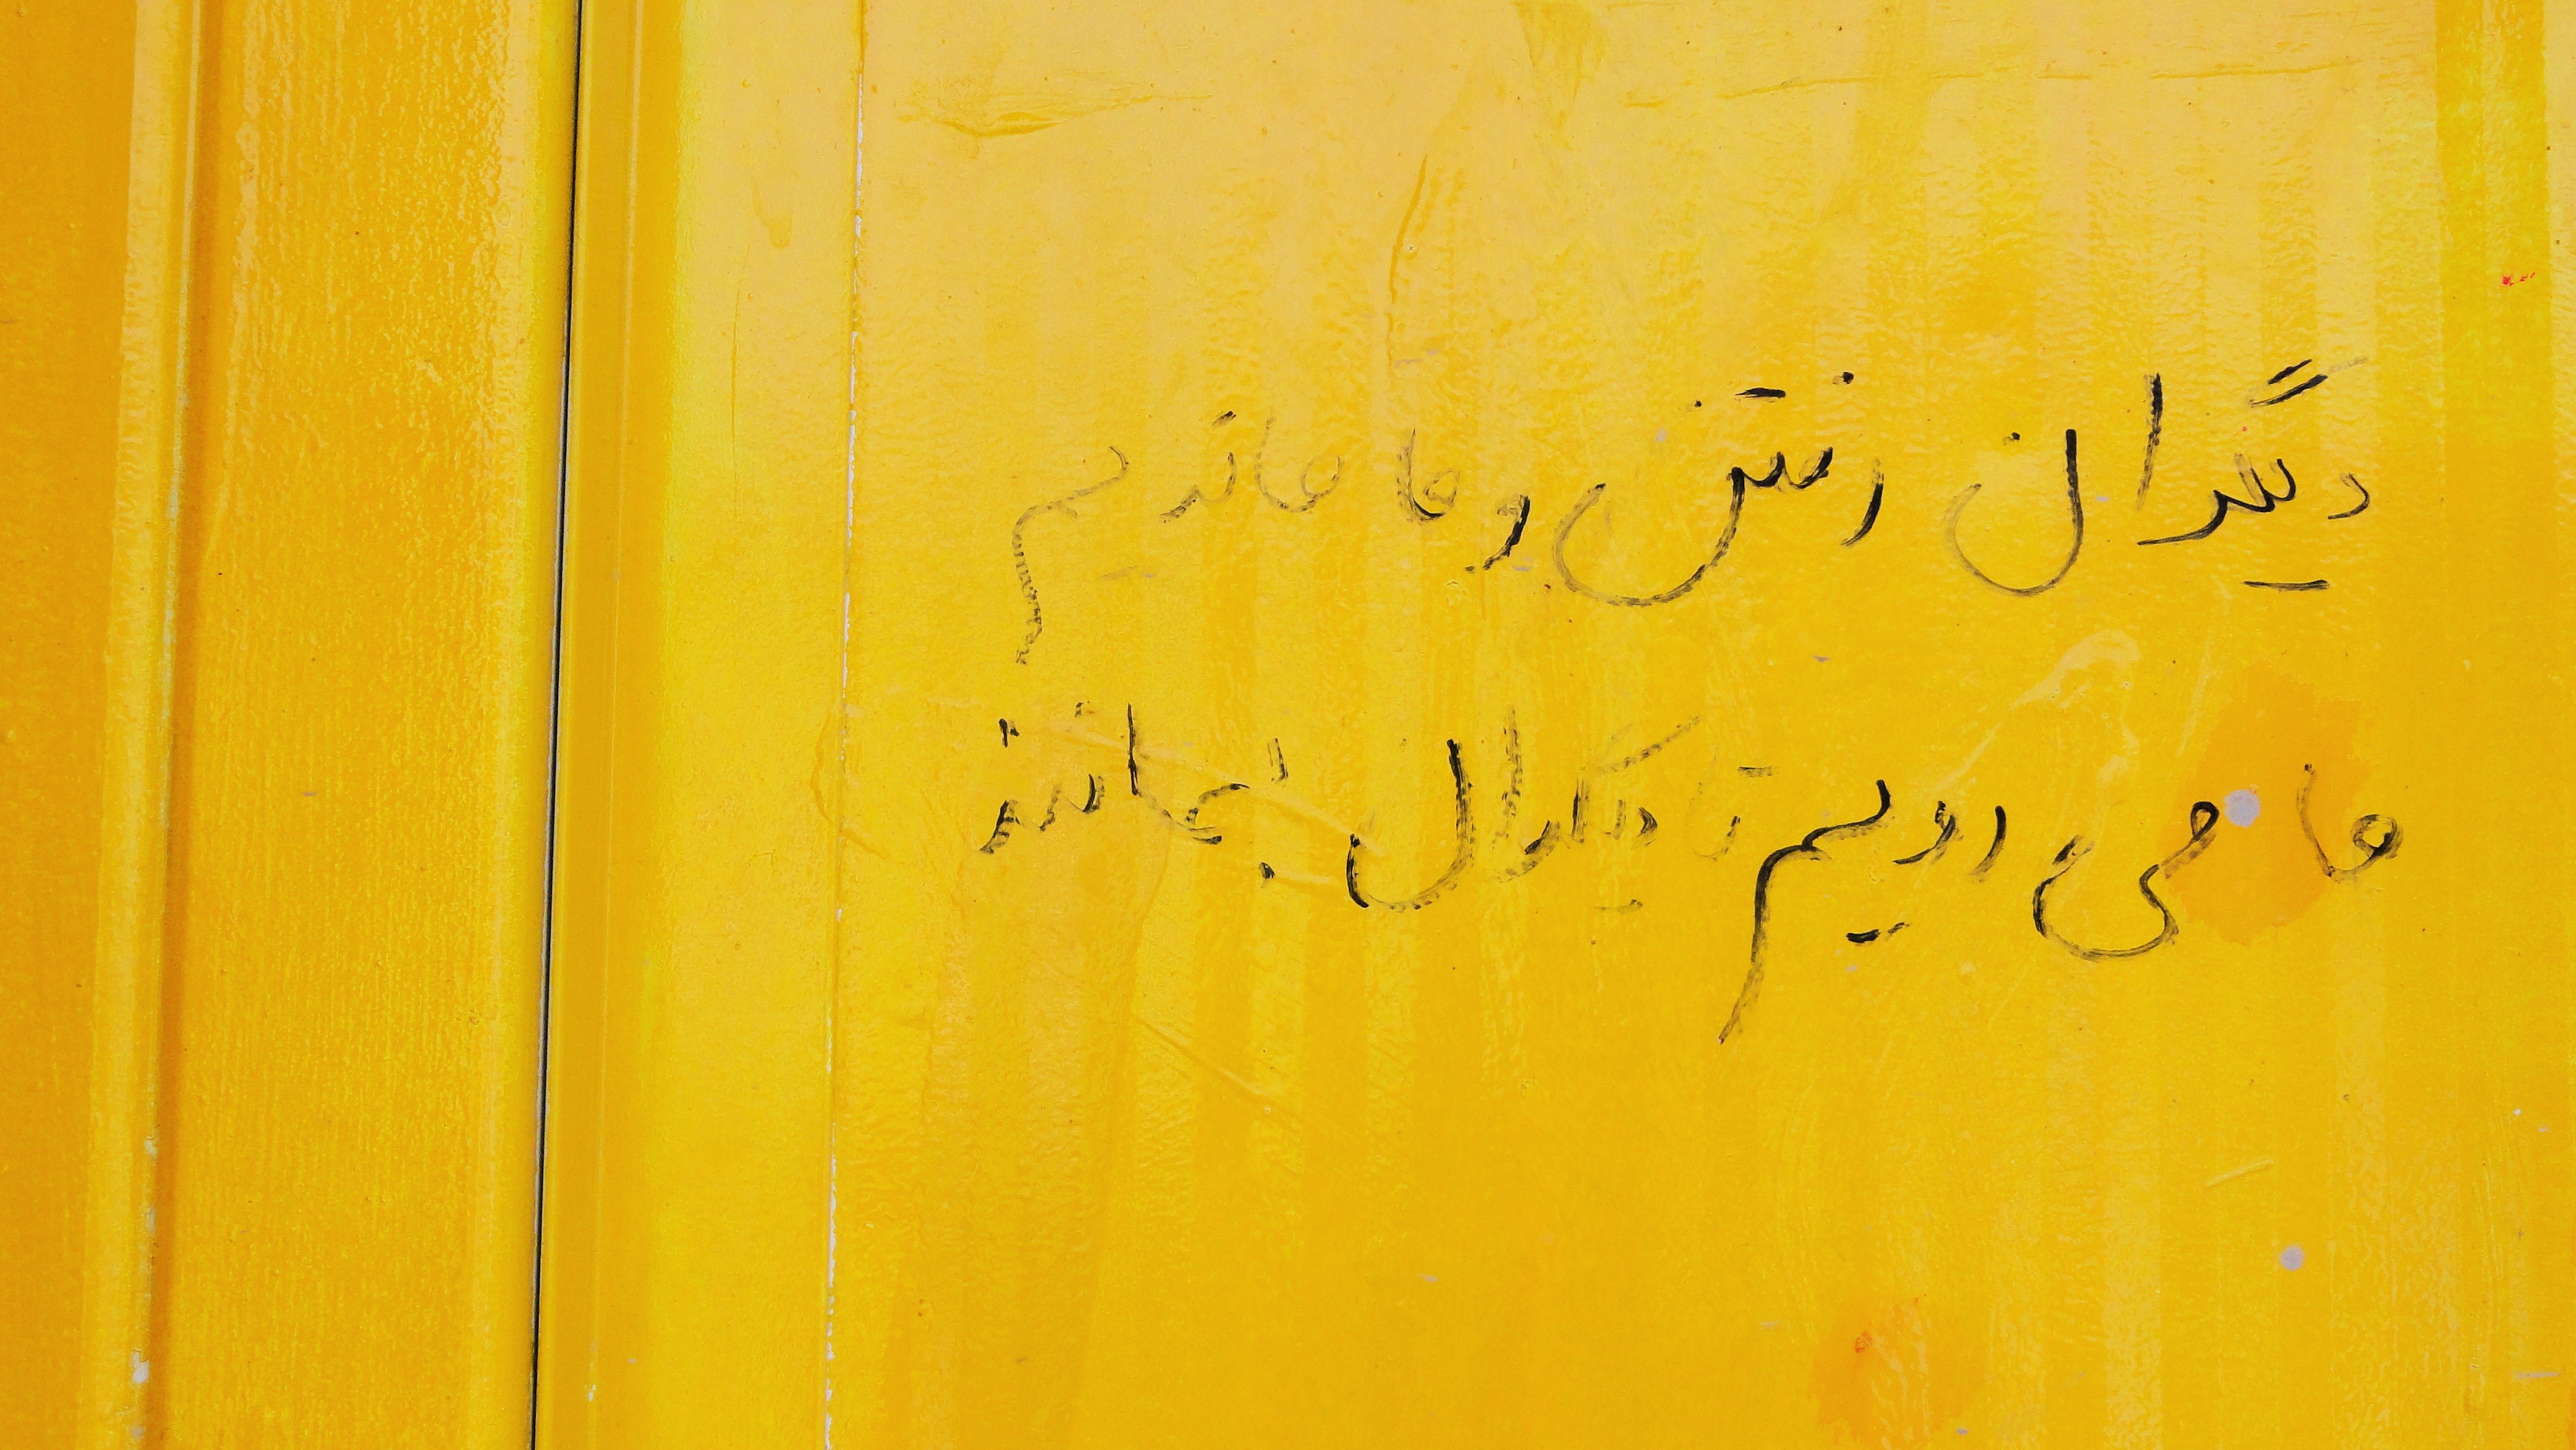 دیگران رفتن و ما ماندیم
ما می رویم تا دیگران بمانند